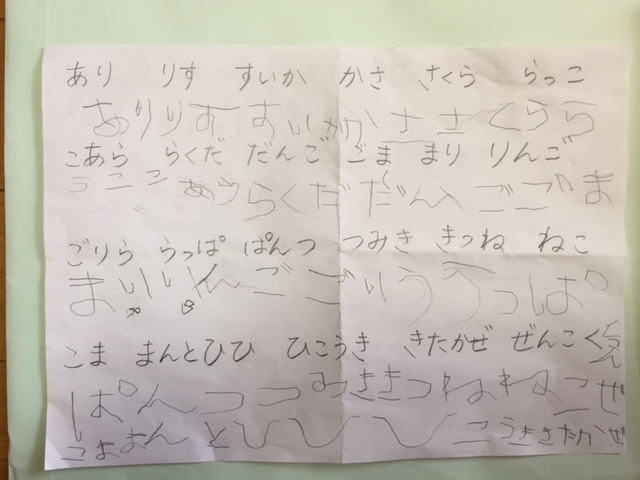 あり りす すいか かさ さくら らっこ
ありりすすいかかささくらら
こあら らくだ だんご ごま まり りんご
っここあららくだだんごごま
ごりら らっぱ ぱんつ つみき きつね ねこ
まりりんごごりららっぱ
こま まんとひひ ひこうき きたかぜ ぜんこく
ぱんつつみききつねねこぜ
こままんとひひひこうききたかぜ